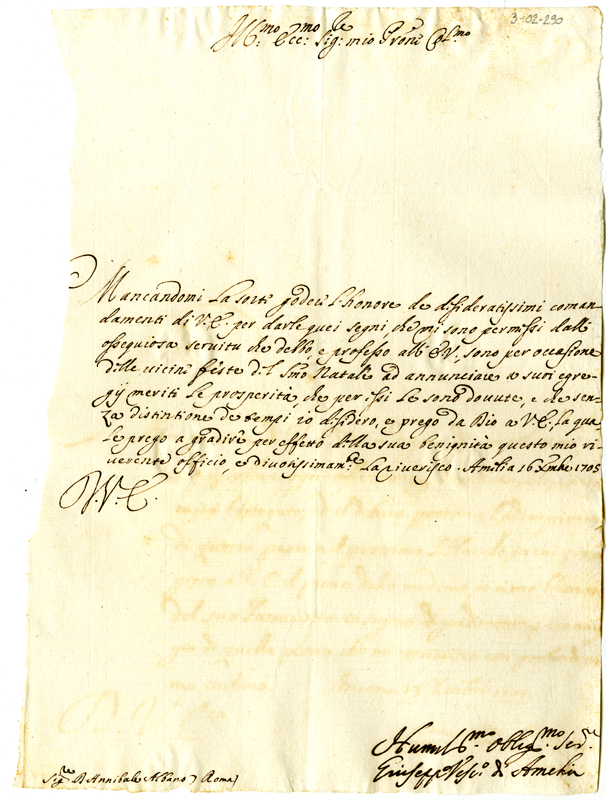 3-02-290
Ill:mo Ecc:mo Sig:re mio Pron Col:mo
Mancandomi la sorte godere l'honore de desideratissimi coman-
damenti di V.E. per darle quei segni che mi sono permessi dall'
ossequiosa servitù che debbo, e professo all'E.V., sono per occasione
delle vicine feste del S.mo Natale ad annunciare a suoi egre-
gij meriti le prosperità, che per essi le sono dovute, e che sen-
za distintione de tempi io desidero, e prego da Dio a V.E. La qua
le prego a gradire per effetto della sua benignità questo mio ri-
verente officio, e divotissimam.te la riverisco. Amelia 16 Xmbre 1705
V.E.
Humil.mo Oblig.mo Ser.re
Giuseppe Vesc.o di Amelia
Sig.re D Annibale Albano Roma